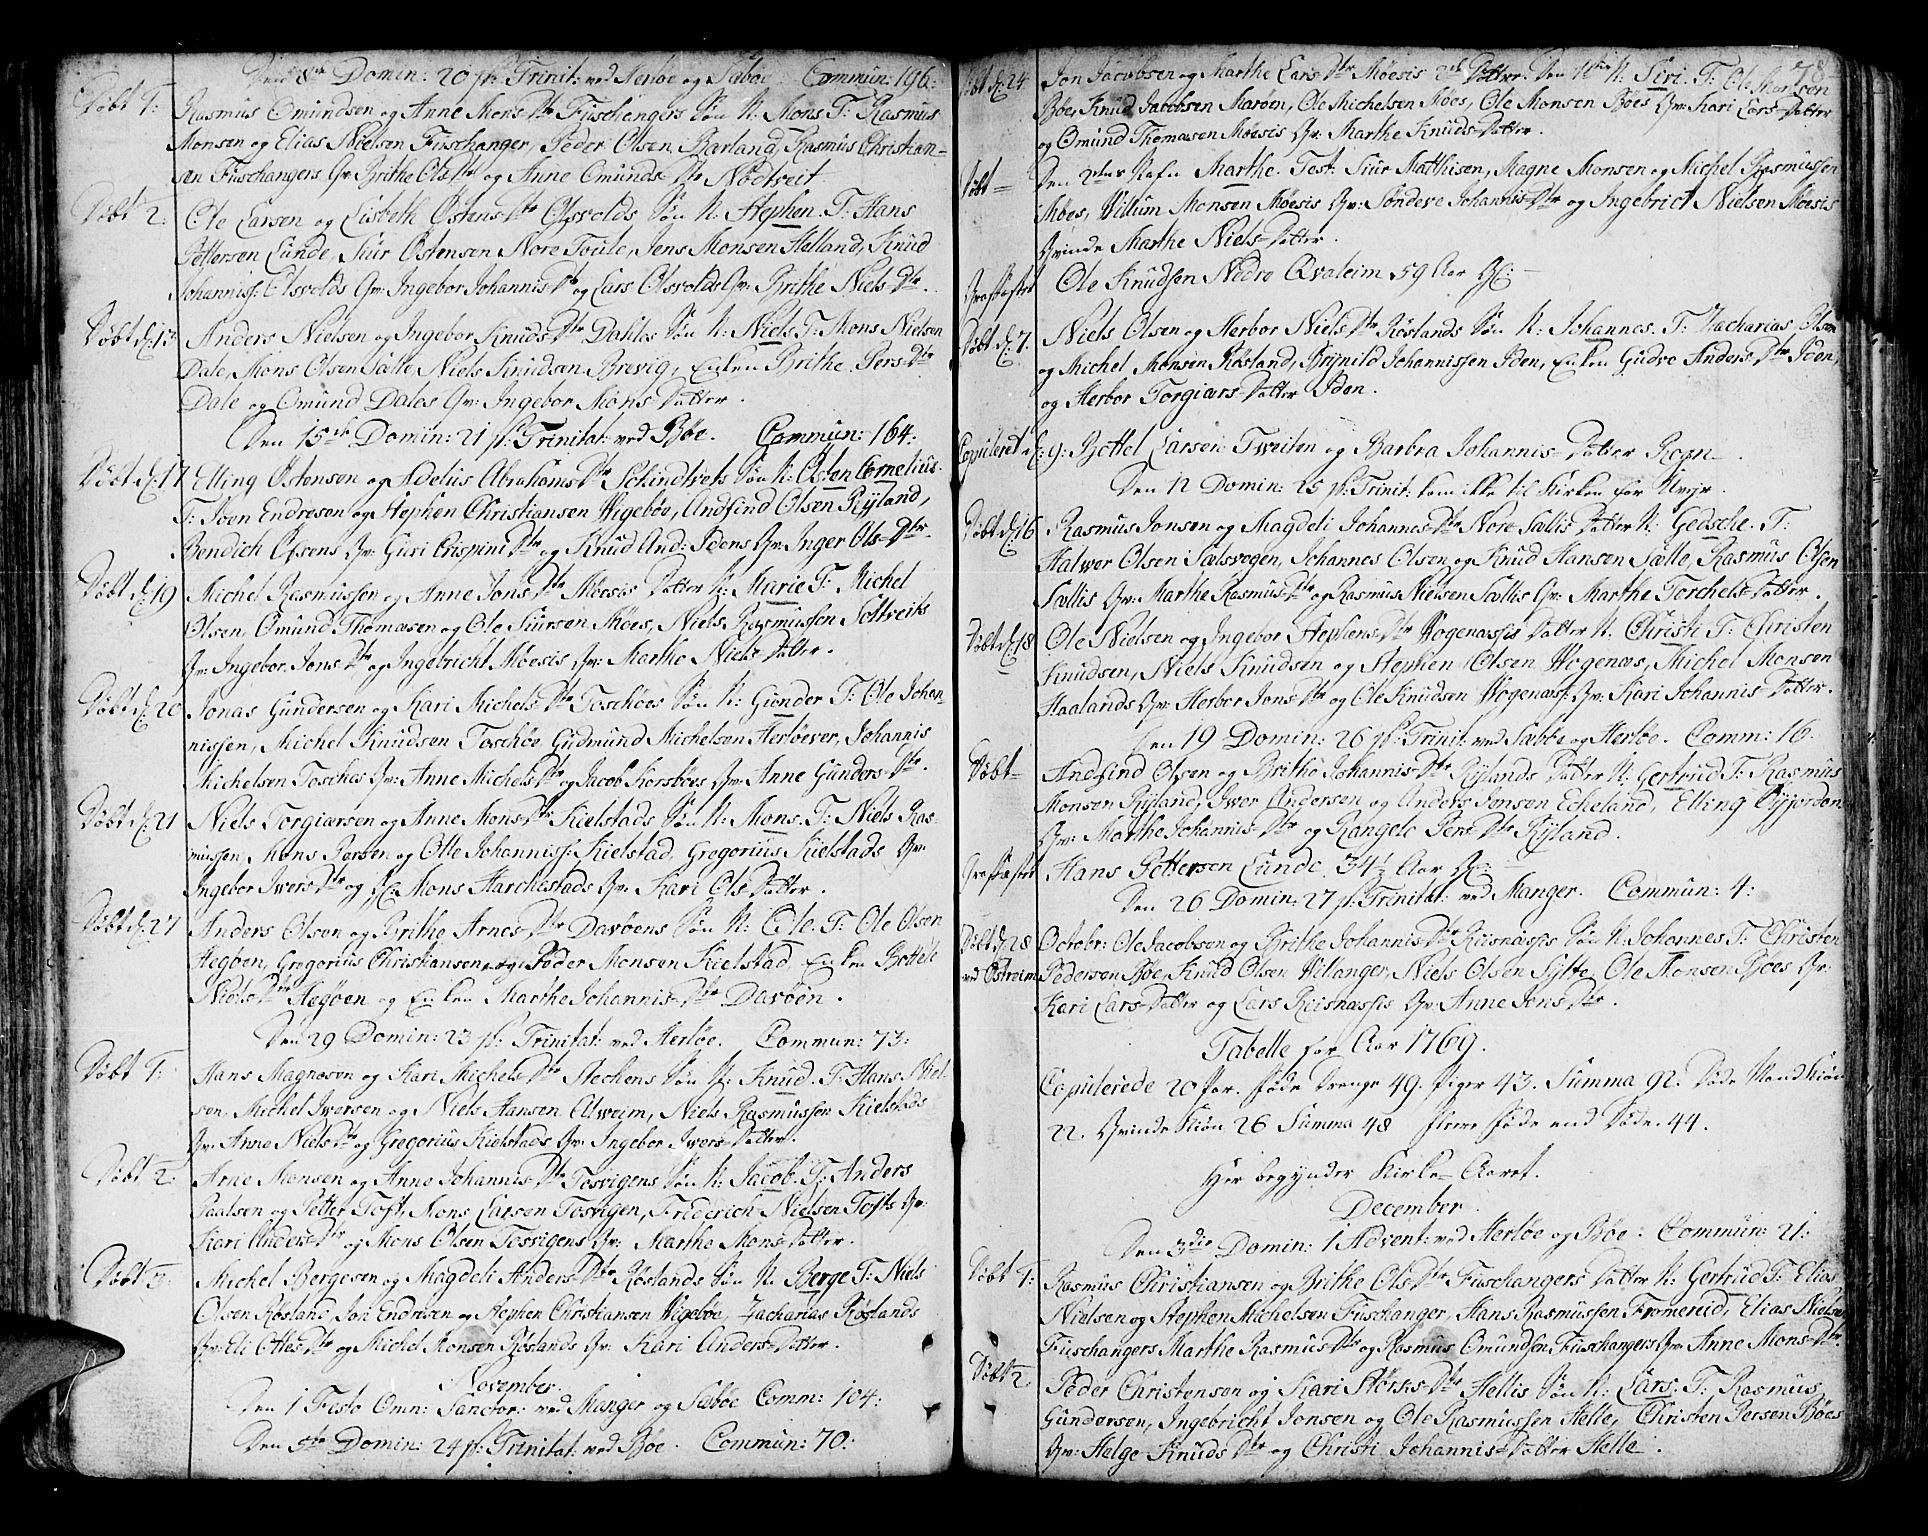 Den 8de Domin: 20 p. Trinit: ved Herløe og Sæbøe Commun: 196:
Døbt 1: Rasmus Omundsen og Anne Mons Dtr Fuschangers Søn N: Mons T: Rasmus
Monsen og Elias Nielsen Fuschanger, Peder Olsen Barland, Rasmus Christian-
sen Fuschangers Qv: Brithe Ols Dtr og Anne Omunds Dtr Nødtveit
Døbt 2: Ole Larsen og Lisbeth Østens Dtr Olsvolds Søn N: Stephen. T: Hans
Pettersen Lunde, Siur Østensen Nore Toule, Jens Monsen Helland, Knud
Johanniss: Olsvolds Qv: Ingebor Johannis Dtr og Lars Olsvolds Qv: Brithe Niels Dtr.
Døbt d: 13 Anders Nielsen og Ingebor Knuds Dtr Dahles Søn N: Niels. T: Mons Nielsen
Dale, Mons Olsen Sætte, Niels Knudsen Brevig, Enken Brithe Pers Dtr
Dale og Omund Dales Qv: Ingebor Mons Datter.
Den 15de Domin: 21 p. Trinitat: ved Bøe. Commun: 164:
Døbt d: 17 Elling Østensen og Adelus Abrahams Dtr Schindtvets Søn N: Østen Cornelius.
T: Iven Endresen og Stephen Christiansen Wigebøe, Andfind Olsen Ryland,
Bendich Olsens Qv: Guri Crispini Dtr og Knud And: Idens Qv: Inger Ols Dtr.
Døbt d: 19 Michel Rasmussen og Anne Jons Dtr Møesis Datter N: Marie T: Michel
Olsen, Omund Thomæsen og Ole Siursen Møes, Niels Rasmussen Soltveits
Qv: Ingebor Jons Dtr og Ingebricht Møesis Qv: Marthe Niels Datter.
Døbt d: 20 Jonas Gundersen og Kari Michels Dtr Toschøes Søn N: Gunder T: Ole Johan-
nissen, Michel Knudsen Toschøe, Gudmund Michelsen Herløever, Johannis
Michelsen Tosches Qv: Anne Michels Dtr og Jacob Korsbøes Qv: Anne Gunders Dtr.
Døbt d: 21 Niels Torgiærsen og Anne Mons Dtr Kielstads Søn N: Mons. T: Niels Ras-
mussen, Mons Børsen og Otte Johanniss: Kielstad, Gregorius Kielstads Qv:
Ingebor Ivers Dtr og Mons Harchestads Qv: Kari Ols Datter.
Døbt d: 27 Anders Olsen og Brithe Arnes Dtr Davøens Søn N: Ole. T: Ole Olsen
Hegøen, Gregorius Christiansen og Peder Monsen Kielstad, Enken Bottele
Niels Dtr Hegøen og Enken Marthe Johannis Dtr Davøen.
Den 29 Domin: 23 p. Trinitat: ved Herløe. Commun: 73:
Døbt 1: Hans Magnesen og Kari Michels Dtr Stechens Søn N: Knud. T: Hans Niel-
sen, Michel Iversen og Niels Hansen Alveim, Niels Rasmussen Kielstads
Qv: Anne Niels Dtr og Gregorius Kielstads Qv: Ingebor Ivers Datter.
Døbt 2: Arne Monsen og Anne Johannis Dtr Tosvigens Søn N: Jacob. T: Anders
Paalsen og Petter Toft, Mons Larsen Tosvigen, Frederich Nielsen Tofts Qv:
Kari Anders Dtr og Mons Olsen Tosvigens Qv: Marthe Mons Datter.
Døbt 3: Michel Bergesen og Magdeli Anders Dtr Røslands Søn N: Berge T: Niels
Olsen Røsland, Jon Endresen og Stephen Christiansen Wigebøe, Zacharias Røslands
Qv: Eli Ottes Dtr og Michel Monsen Røslands Qv: Kari Anders Datter.
November.
Den 1 Festo Omn: Sanctor: ved Manger og Sæbøe Comm: 104:
Den 5te Domin: 24 p. Trinitat: ved Bøe. Commun: 70:
78
Døbt d: 24 Jon Jacobsen og Marthe Lars Dtr Møesis 2de Døttre. Den 1te N: Siri. T: Ole
Bøe, Knud Jacobsen Marøen, Ole Michelsen Møes, Ole Monsen Bøes Qv: Kari Lars Datter
og Omund Thomæsen Møesis Qv: Marthe Knuds Datter.
Døbt = Den 2den Nafn Marthe. Test: Siur Matthisen, Magne Monsen og Michel Rasmussen
Møes, Villum Monsen Møesis Qv: Søndeve Johannis Dtr og Ingebrict Nielsen Møesis
Qvinde Marthe Niels Datter.
Grafæstet Ole Knudsen Nedre Qvaleim 59 Aar
Døbt d: 7. Niels Olsen og Herbor Niels Dtr Røslands Søn N: Johannes. T: Zacharias Olsen
og Michel Monsen Røsland, Brynild Johannissen Iden, Enken Gudve Anders Dtr Iden,
og Herbor Torgiærs Datter Iden.
Copuleret d: 9: Bottel Larsen Tweiten og Barbra Johannis Datter Rogn.
Den 12 Domin: 25 p. Trinit: kom ikke til Kirken for Uvejr.
Døbt d: 16 Rasmus Jonsen og Magdeli Johannes Dtr Nore Sætlis Datter N: Gedsche. T:
Halvor Olsen Sælsvogen, Johannes Olsen og Knud Hansen Sætte, Rasmus Olsen
Sætlis Qv: Marthe Rasmus Dtr og Rasmus Nielsen Sætlis Qv: Marthe Torchels Datter.
Døbt d: 18 Ole Nielsen og Ingebor Stephens Dtr Wogenæssis Datter N. Christi T: Christen
Knudsen, Niels Knudsen og Stephen Olsen Wogenæs, Michel Monsen
Haalands Qv: Herbor Jons Dtr og Ole Knudsen Wogenæss: Qv: Kari Johannis Datter.
Den 19 Domin: 26 p. Trinit: ved Sæbøe og Herløe. Comm: 16.
Døbt = Andfind Olsen og Brithe Johannis Dtr Rylands Datter N: Gertrud T: Rasmus
Monsen Ryland, Iwer Andersen og Anders Jensen Echeland, Elling Øyjorden
Qv: Marthe Johannis Dtr og Rangele Pers Dtr Ryland.
Grafæstet Hans Pettersen Lunde 34½ Aar
Den 26 Domin: 27 p. Trinitat: ved Manger. Commun: 4:
Døbt d: 28 Octobr: Ole Jacobsen og Brithe Johannis Dtr Riisnæssis Søn N. Johannes T: Christen
ved Østreim Pedersen Bøe, Knud Olsen Villanger, Niels Olsen Sylte, Ole Monsen Bøes Qv:
Kari Lars Datter og Lars Reisnæssis Qv: Anne Jens Dtr.
Tabelle for Aar 1769.
Copulerede 20 Par. Føde Drenge 49. Piger 43. Summa 92. Døde Mandkiøn
22. Qvindekiøn 26 Summa 48 flere Føde end Døde. 44.
Her begynder Kirke-Aaret.
December.
Den 3die Domin: 1 Advent: ved Herløe og Bøe: Commun: 21:
Døbt 1: Rasmus Christiansen og Brithe Ols Dtr Fuschangers Datter N: Gertrud T: Elias
Nielsen og Stephen Michelsen Fuschanger, Hans Rasmussen Fromereid, Elias Nielsen
Fuschangers Marthe Rasmus Dtr og Rasmus Omundsen Fuschangers Qv: Anne Mons Dtr.
Døbt 2. Peder Christensen og Kari Størks Dtr Hellis Søn N: Lars. T: Rasmus
Gundersen, Ingebricht Jonsen og Ole Rasmussen Helle, Christen Persen Bøes
Qv: Helge Knuds Dtr og Christi Johannis Datter Helle.